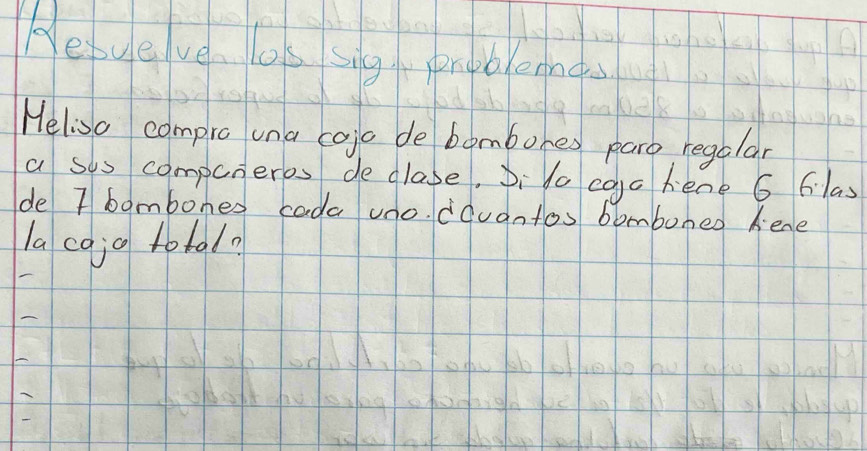 Resuelve los sig. problemas
Melisa compra una caja de bombones para regalar
a sus compañeros de clase. Si la caja tiene 6 filas
de 7 bombones cada uno. ¿Cuantos bombones tiene
la caja total?
-
-
-
-
-